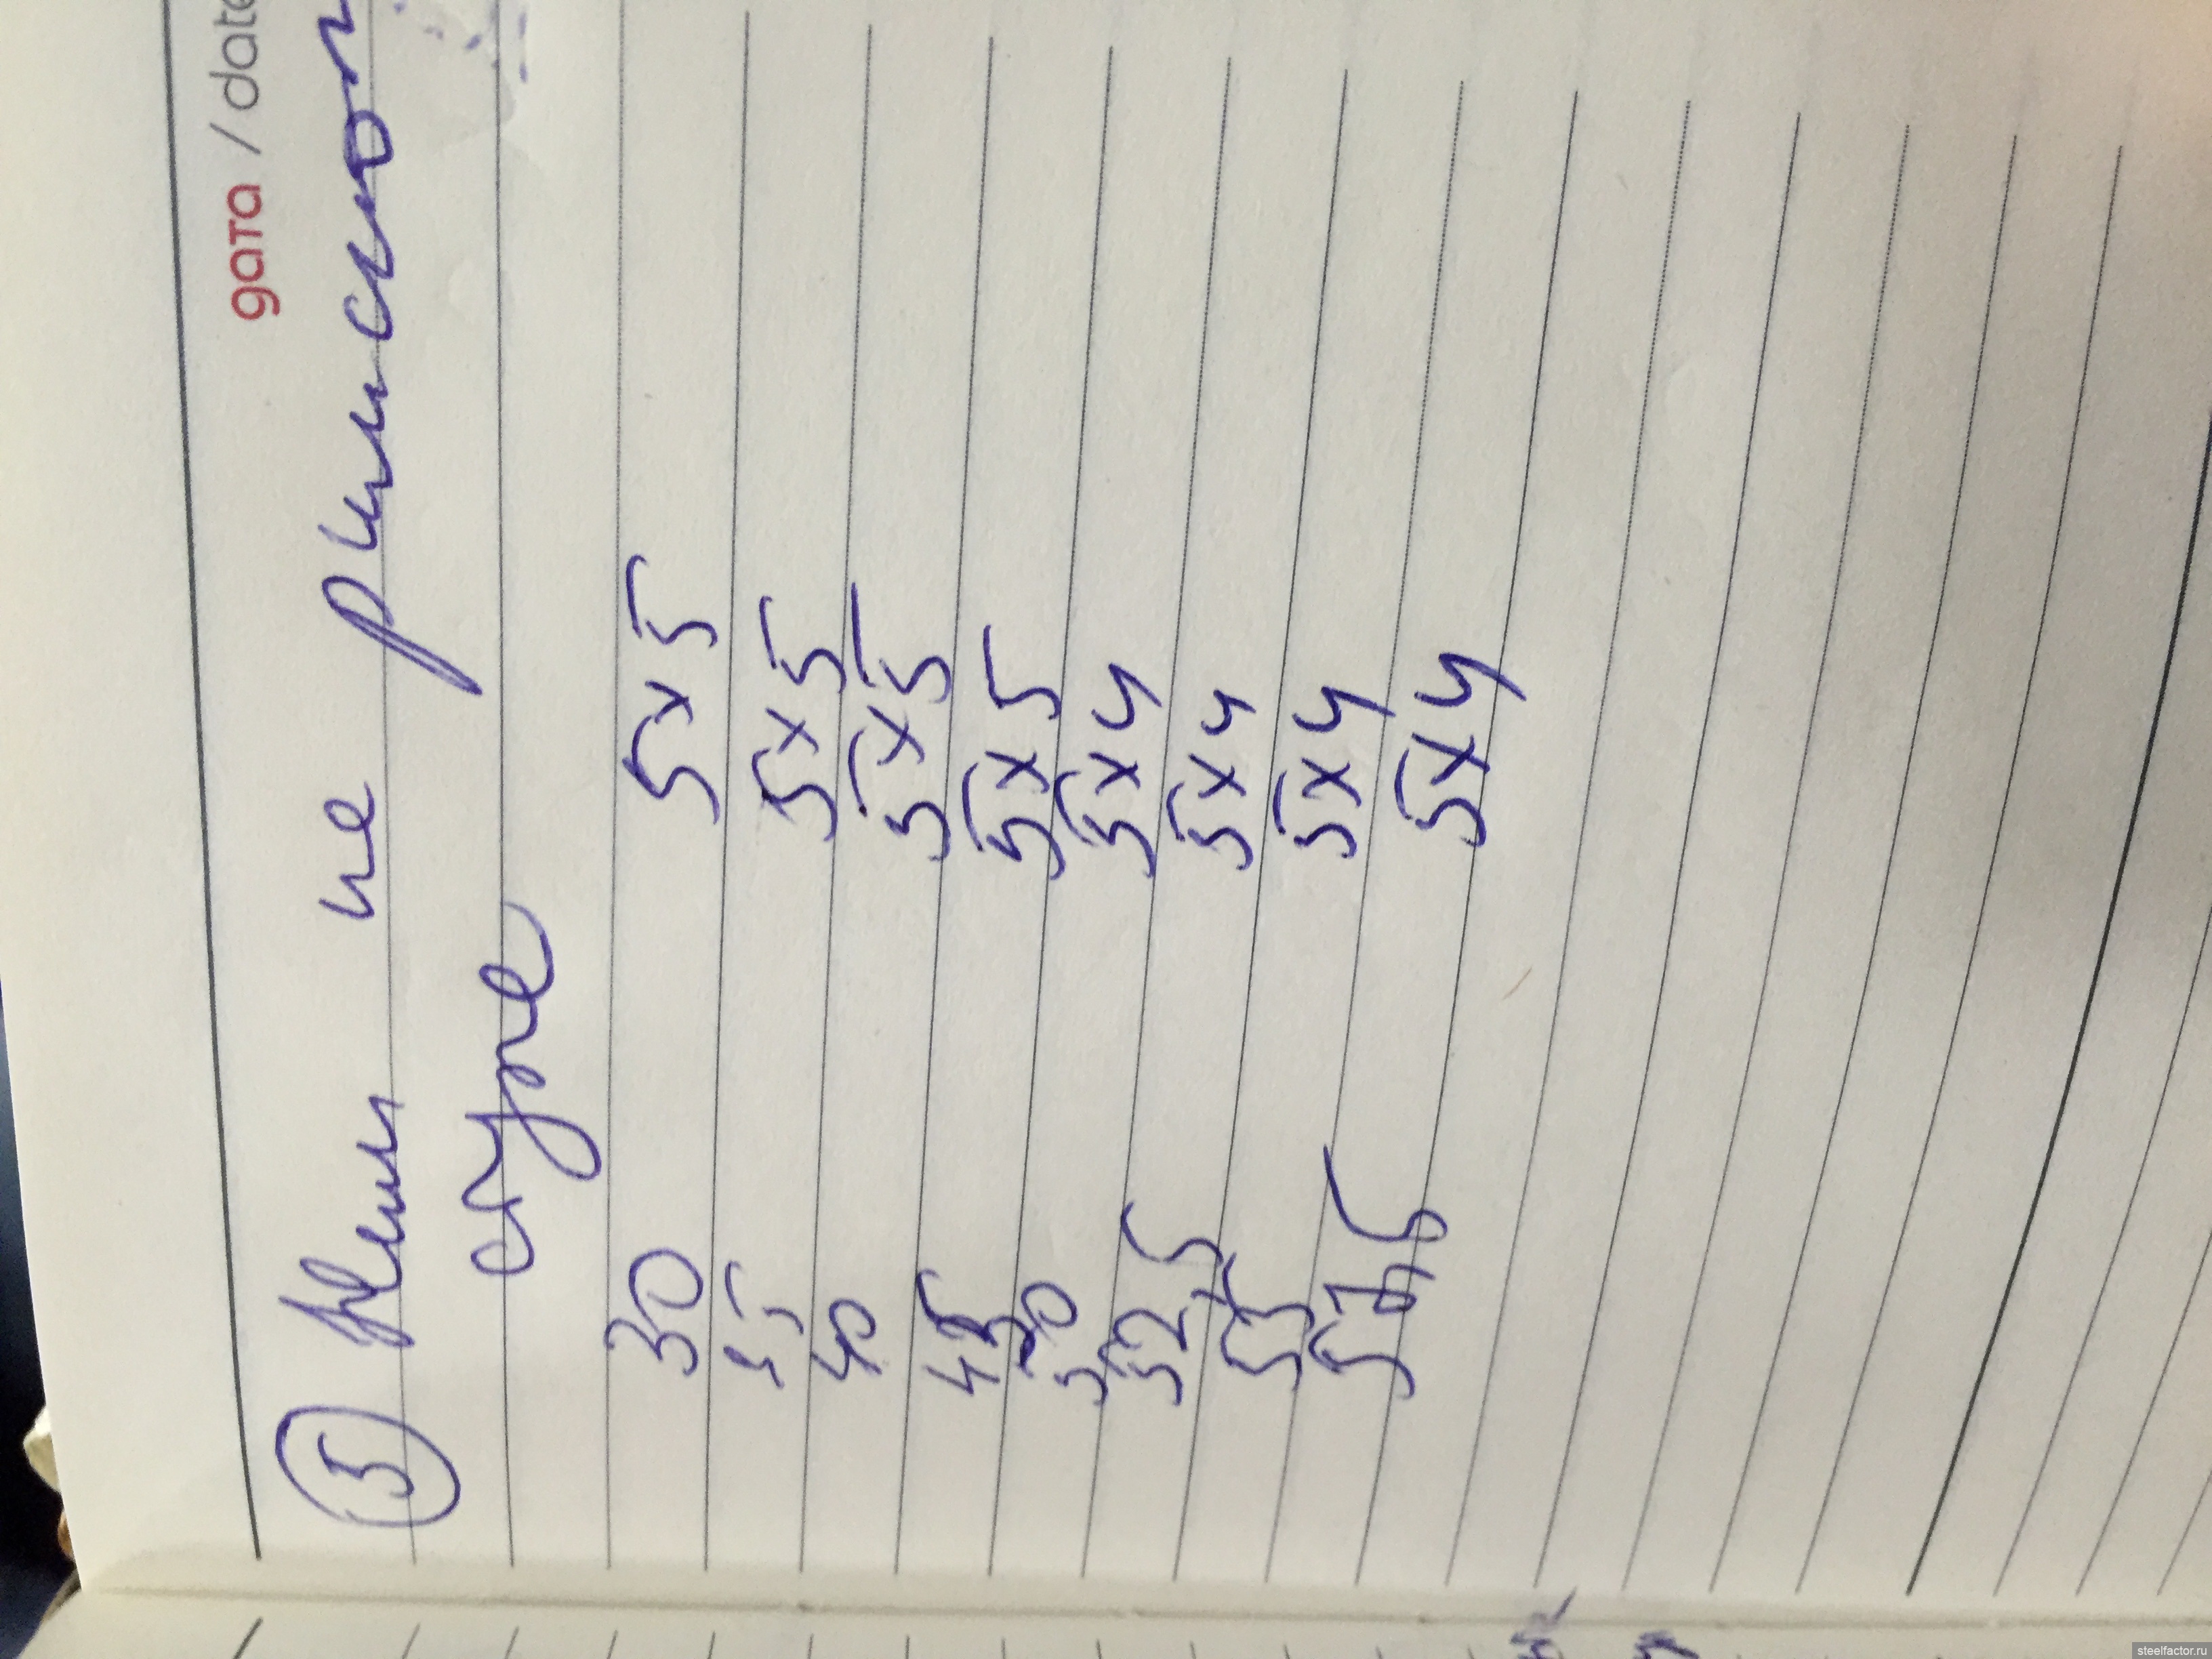 дата / date
5 Жим не римском
стуле
30 5x5
35 5x5
40 5x5
45 5x5
50 5x4
52,5 5x4
55 5x4
57,5 5x4
steelfactor.ru